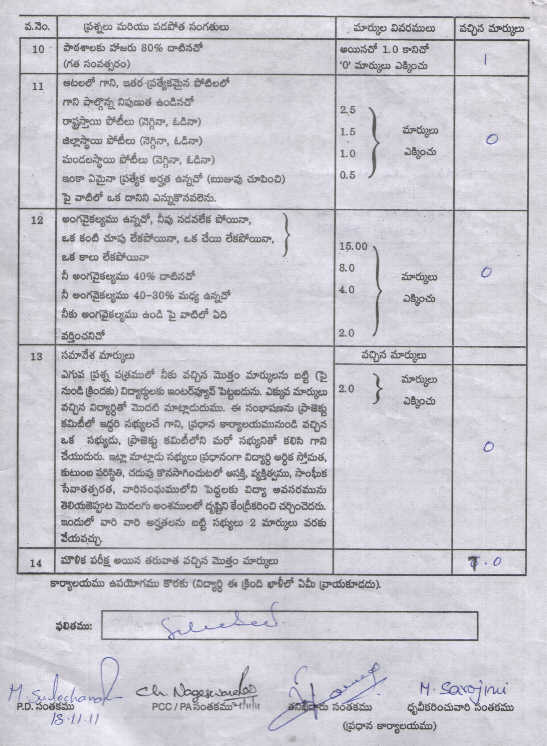 ప.నెం. ప్రశ్నలు మరియు పడపోత సంగతులు మార్కుల వివరములు వచ్చిన మార్కులు
10 పాఠశాలకు హాజరు 80% దాటినచో అయినచో 1.0 కానిచో 1
(గత సంవత్సరం) '0' మార్కులు ఎక్కించు
11 ఆటలలో గాని, ఇతర ప్రత్యేకమైన పోటిలలో
గాని పాల్గొన్న నిపుణత ఉండినచో
రాష్ట్రస్తాయి పోటీలు (నెగ్గినా, ఓడినా) 2.5
జిల్లాస్థాయి పోటీలు (నెగ్గినా, ఓడినా) 1.5 మార్కులు 0
మందలస్థాయి పోటీలు (నెగ్గినా, ఓడినా) 1.0 ఎక్కించు
ఇంకా ఏమైనా ప్రత్యేక అర్హత ఉన్నచో (ఋజువు చూపించి) 0.5
పై వాటిలో ఒక దానిని ఎన్నుకొనవలెను.
12 అంగవైకల్యము ఉన్నచో, నీవు నడవలేక పోయినా,
ఒక కంటి చూపు లేకపోయినా, ఒక చేయి లేకపోయినా, 15.00
ఒక కాలు లేకపోయినా
నీ అంగవైకల్యము 40% దాటినచో 8.0 మార్కులు 0
నీ అంగవైకల్యము 40-30% మధ్య ఉన్నచో 4.0 ఎక్కించు
నీకు అంగవైకల్యము ఉండి పై వాటిలో ఏది
వర్తించనిచో 2.0
13 సమావేశ మార్కులు వచ్చిన మార్కులు
ఎగువ ప్రశ్న పత్రములో నీకు వచ్చిన మొత్తం మార్కులను బట్టి (పై మార్కులు
నుండి క్రిందకు) విద్యార్థులకు ఇంటర్వ్యూన్ పెట్టబడును. ఎక్కువ మార్కులు 2.0 ఎక్కించు
వచ్చిన విద్యార్థితో మొదటి మాట్లాడుదుము. ఈ సంభాషణను ప్రాజెక్టు
కమిటీలో ఇద్దరి సభ్యులచే గాని, ప్రధాన కార్యాలయమునుండి వచ్చిన
ఒక సభ్యుడు, ప్రాజెక్టు కమిటీలోని మరో సభ్యునితో కలిసి గాని 0
చేయుదురు. ఇట్లా మాట్లాడు సభ్యులు ప్రధానంగా విద్యార్థి ఆర్థిక స్తోమత,
కుటుంబ పరిస్థితి, చదువు కొనసాగించుటలో ఆసక్తి, వ్యక్తిత్వము, సాంఘీక
సేవాతత్పరత, వారిసంఘములోని పెద్దలకు విద్యా అవసరమును
తెలియజెప్పుట మొదలగు అంశములలో దృష్టిని కేంద్రీకరించి చర్చించెదరు.
ఇందులో వారి వారి అర్హతలను బట్టి సభ్యులు 2 మార్కులు వరకు
వేయవచ్చు.
14 మౌళిక పరీక్ష అయిన తరువాత వచ్చిన మొత్తం మార్కులు 7.0
కార్యాలయము ఉపయోగము కొరకు (విద్యార్థి ఈ క్రింది ఖాళీలో ఏమీ వ్రాయకూడదు).
ఫలితము: Selected
M. Sulochana Ch. Nageswara M. Sarojini
P.D. సంతకము PCC / PA సంతకము సంతకము ధృవీకరించువారి సంతకము
18-11-11 (ప్రధాన కార్యాలయము)